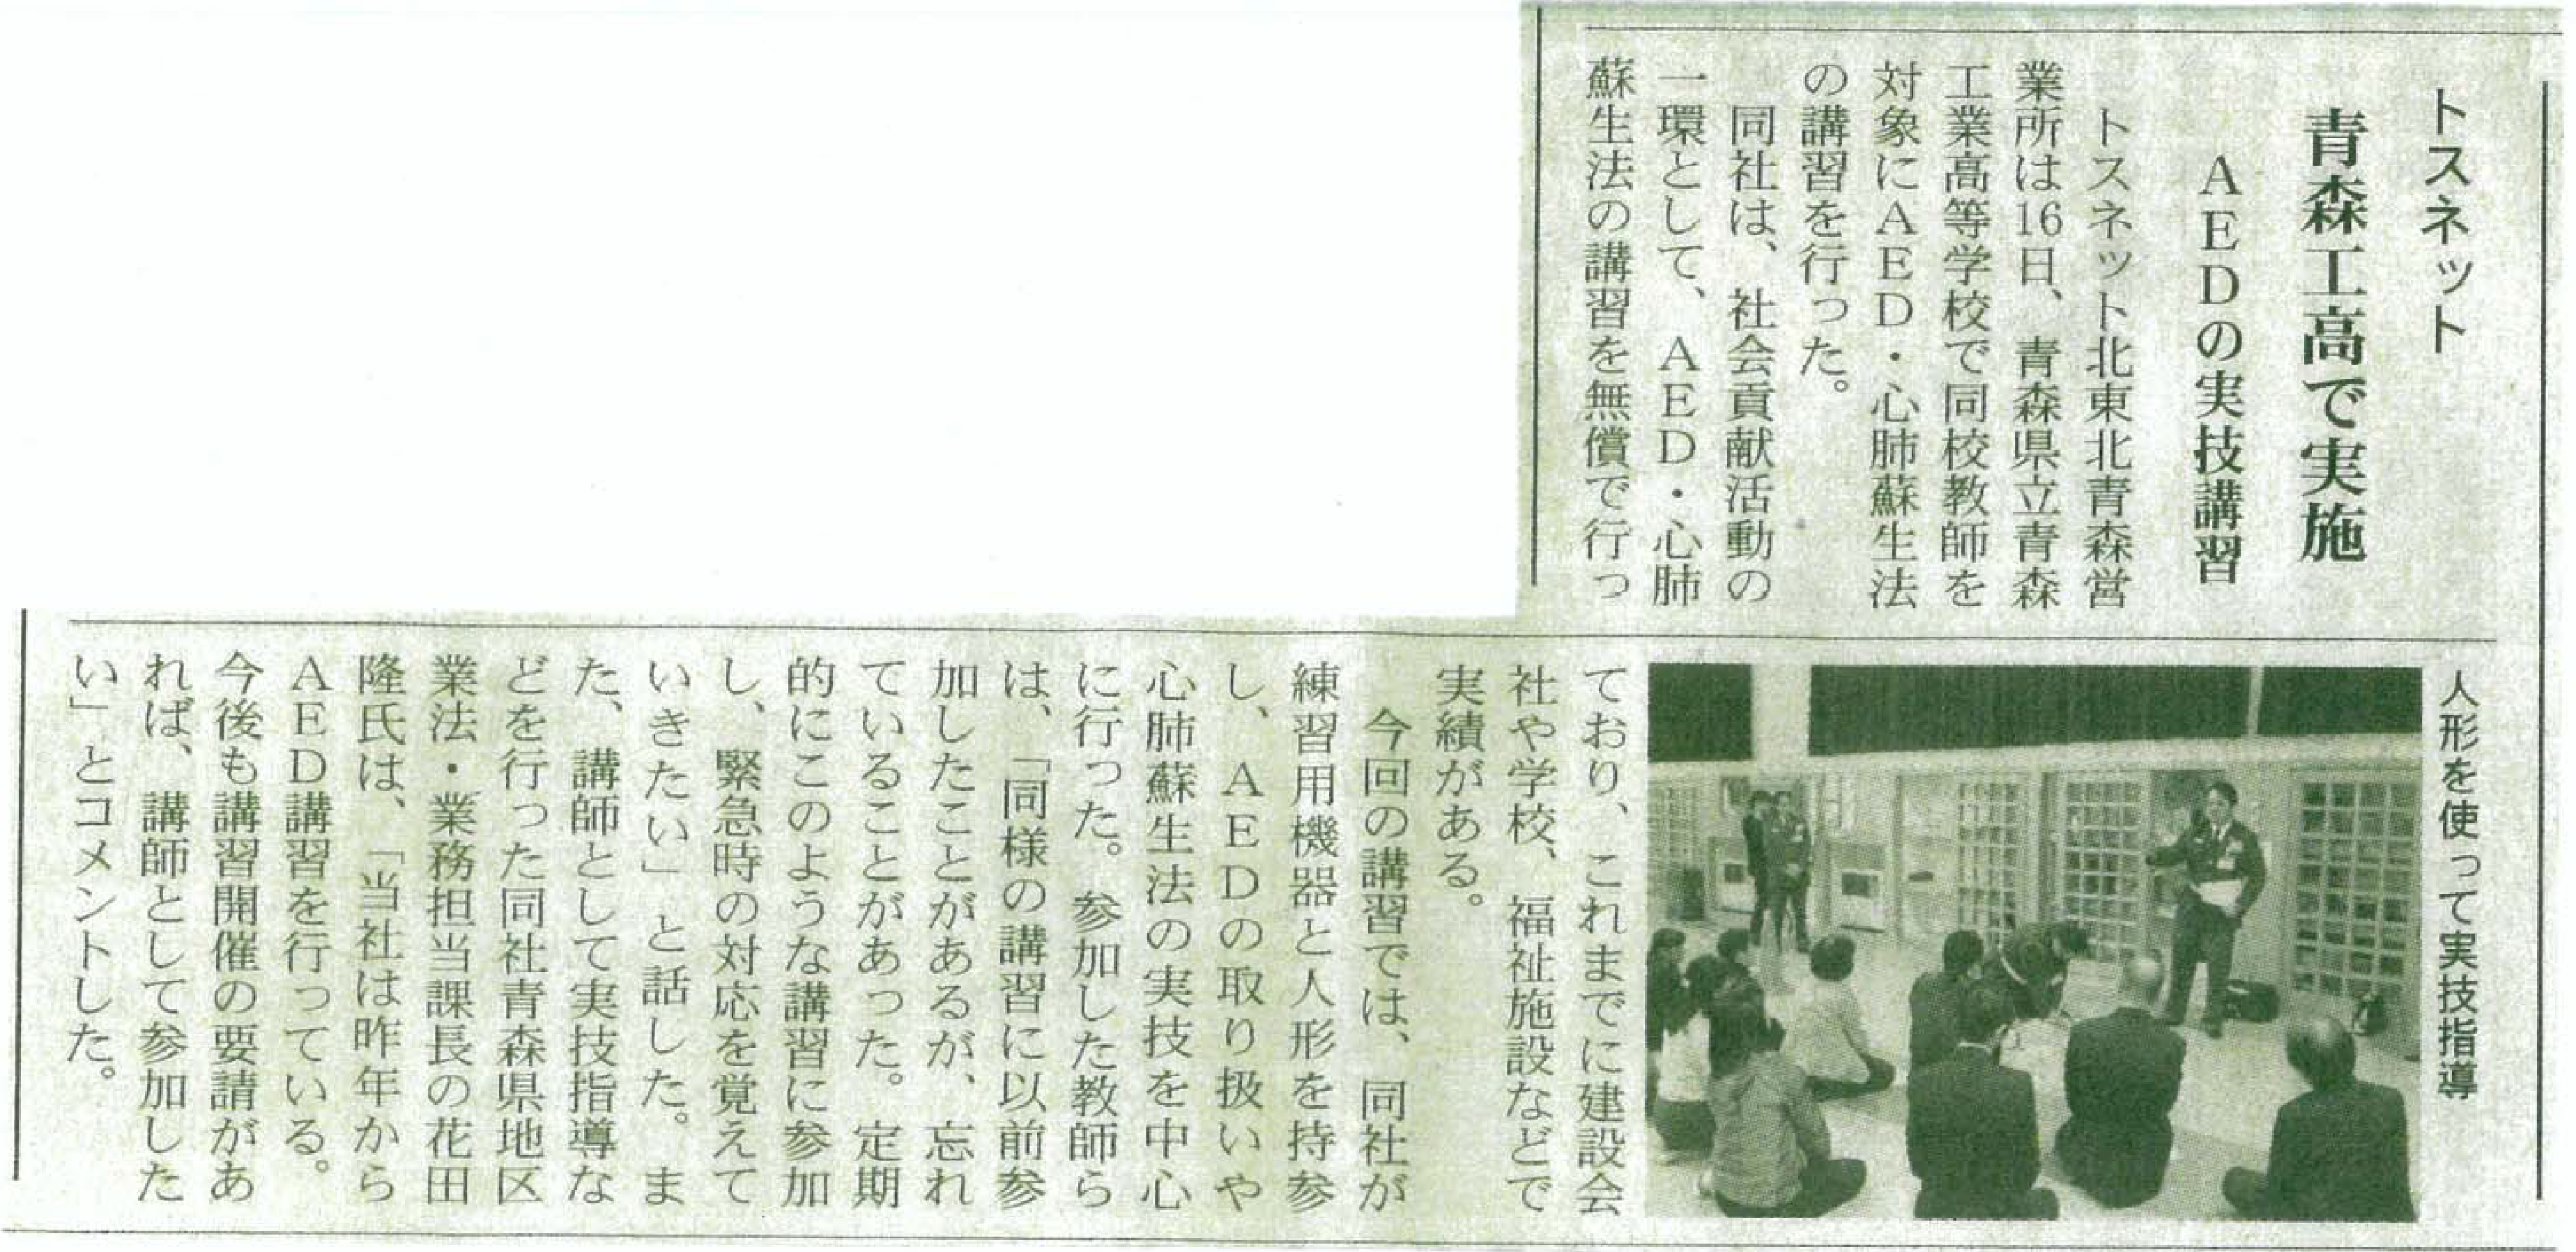 トスネット
青森工高で実施
AEDの実技講習
トスネット北東北青森営
業所は16日、青森県立青森
工業高等学校で同校教師を
対象にAED・心肺蘇生法
の講習を行った。
同社は、社会貢献活動の
一環として、AED・心肺
蘇生法の講習を無償で行っ
人形を使って実技指導
ており、これまでに建設会
社や学校、福祉施設などで
実績がある。
今回の講習では、同社が
練習用機器と人形を持参
し、AEDの取り扱いや
心肺蘇生法の実技を中心
に行った。参加した教師ら
は、「同様の講習に以前参
加したことがあるが、忘れ
ていることがあった。定期
的にこのような講習に参加
し、緊急時の対応を覚えて
いきたい」と話した。ま
た、講師として実技指導な
どを行った同社青森県地区
業法・業務担当課長の花田
隆氏は、「当社は昨年から
AED講習を行っている。
今後も講習開催の要請があ
れば、講師として参加した
い」とコメントした。